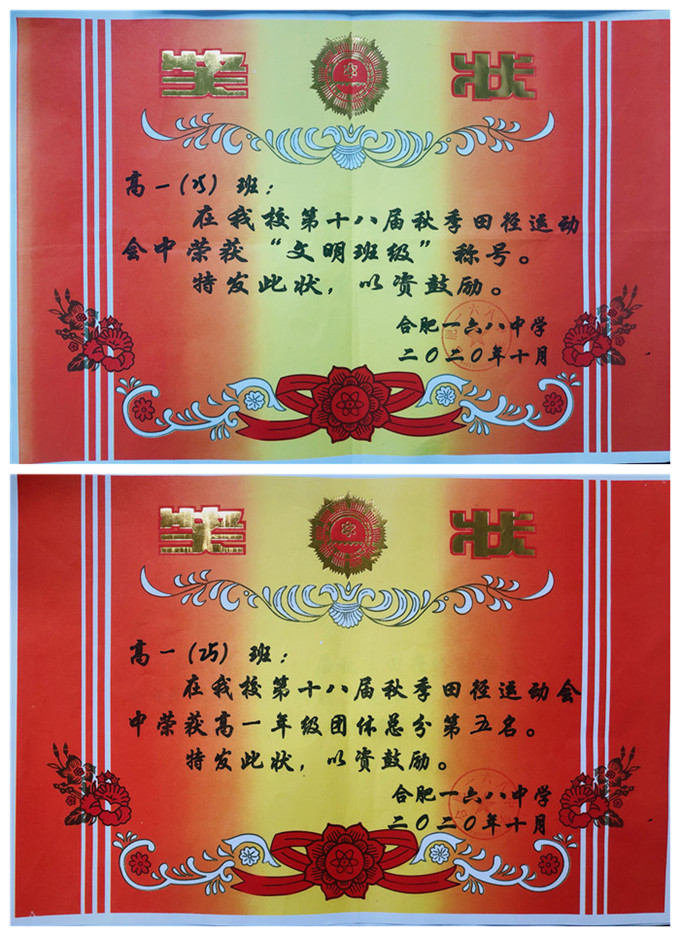 奖 状
高一(25)班：
在我校第十八届秋季田径运动
会中荣获“文明班级”称号。
特发此状，以资鼓励。
合肥一六八中学
二〇二〇年十月
奖 状
高一(25)班：
在我校第十八届秋季田径运动会
中荣获高一年级团体总分第五名。
特发此状，以资鼓励。
合肥一六八中学
二〇二〇年十月